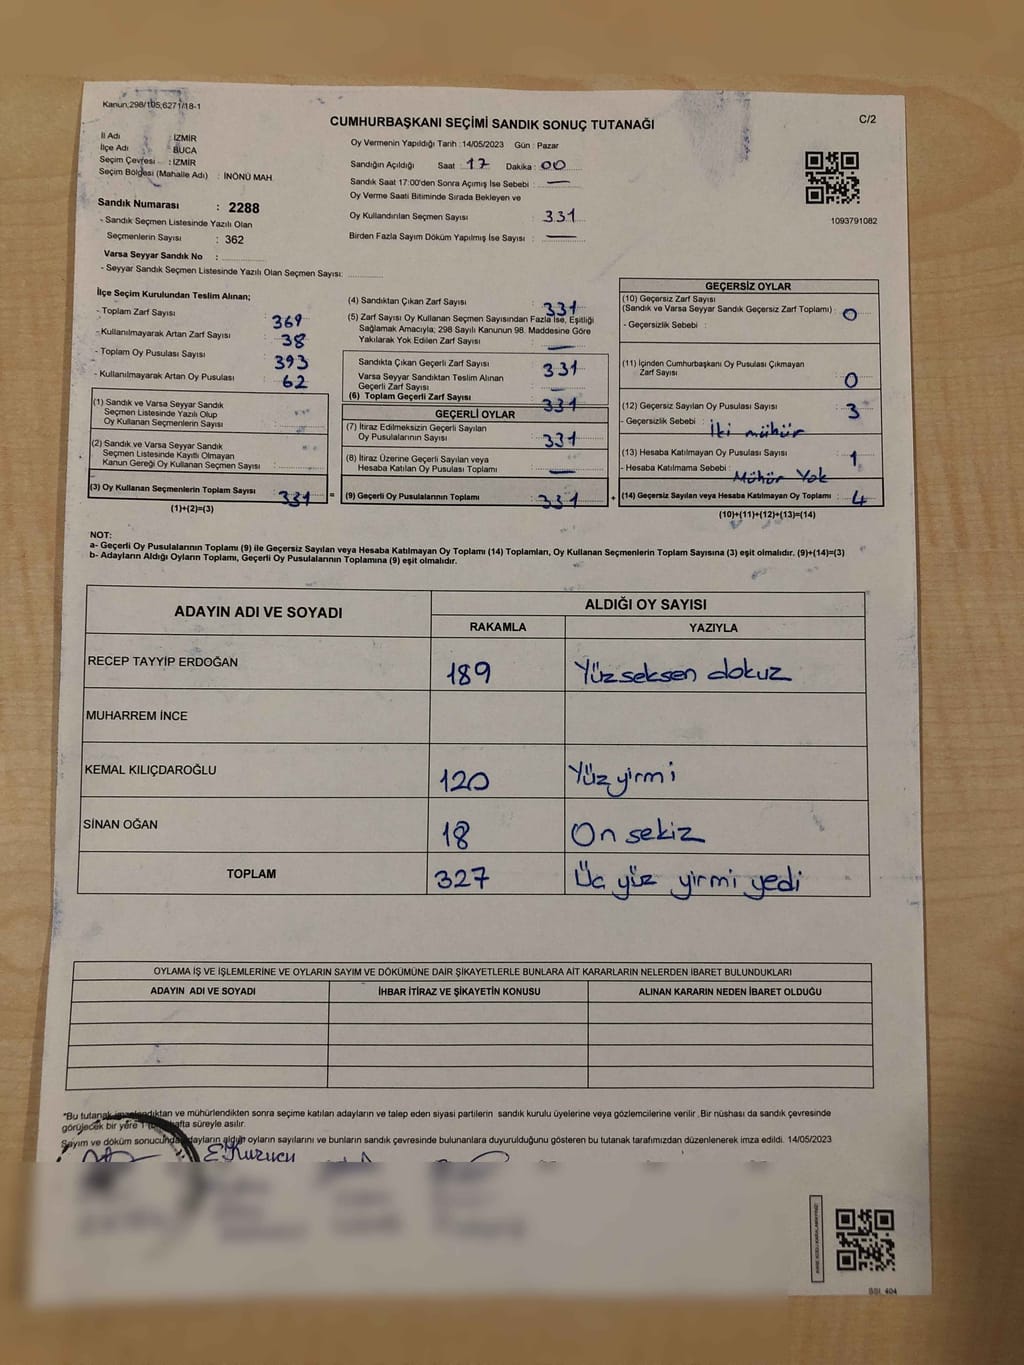 Kanun,298/105;6271/18-1
CUMHURBAŞKANI SEÇİMİ SANDIK SONUÇ TUTANAĞI
C/2
İl Adı : İZMİR
İlçe Adı : BUCA
Seçim Çevresi : İZMİR
Seçim Bölgesi (Mahalle Adı) : İNÖNÜ MAH.
Sandık Numarası : 2288
- Sandık Seçmen Listesinde Yazılı Olan
Seçmenlerin Sayısı : 362
Varsa Seyyar Sandık No :
- Seyyar Sandık Seçmen Listesinde Yazılı Olan Seçmen Sayısı:
Oy Vermenin Yapıldığı Tarih : 14/05/2023 Gün : Pazar
Sandığın Açıldığı Saat : 17 Dakika : 00
Sandık Saat 17:00'den Sonra Açımış İse Sebebi : —
Oy Verme Saati Bitiminde Sırada Bekleyen ve
Oy Kullandırılan Seçmen Sayısı : 331
Birden Fazla Sayım Döküm Yapılmış İse Sayısı : —
1093791082
İlçe Seçim Kurulundan Teslim Alınan;
- Toplam Zarf Sayısı : 369
- Kullanılmayarak Artan Zarf Sayısı : 38
- Toplam Oy Pusulası Sayısı : 393
- Kullanılmayarak Artan Oy Pusulası : 62
(1) Sandık ve Varsa Seyyar Sandık
Seçmen Listesinde Yazılı Olup
Oy Kullanan Seçmenlerin Sayısı
(2) Sandık ve Varsa Seyyar Sandık
Seçmen Listesinde Kayıtlı Olmayan
Kanun Gereği Oy Kullanan Seçmen Sayısı
(3) Oy Kullanan Seçmenlerin Toplam Sayısı : 331 =
(1)+(2)=(3)
(4) Sandıktan Çıkan Zarf Sayısı : 331
(5) Zarf Sayısı Oy Kullanan Seçmen Sayısından Fazla İse, Eşitliği
Sağlamak Amacıyla; 298 Sayılı Kanunun 98. Maddesine Göre
Yakılarak Yok Edilen Zarf Sayısı : —
Sandıkta Çıkan Geçerli Zarf Sayısı : 331
Varsa Seyyar Sandıktan Teslim Alınan
Geçerli Zarf Sayısı : —
(6) Toplam Geçerli Zarf Sayısı : 331
GEÇERLİ OYLAR
(7) İtiraz Edilmeksizin Geçerli Sayılan
Oy Pusulalarının Sayısı : 331
(8) İtiraz Üzerine Geçerli Sayılan veya
Hesaba Katılan Oy Pusulası Toplamı : —
(9) Geçerli Oy Pusulalarının Toplamı : 331 +
GEÇERSİZ OYLAR
(10) Geçersiz Zarf Sayısı
(Sandık ve Varsa Seyyar Sandık Geçersiz Zarf Toplamı) : 0
- Geçersizlik Sebebi :
(11) İçinden Cumhurbaşkanı Oy Pusulası Çıkmayan
Zarf Sayısı : 0
(12) Geçersiz Sayılan Oy Pusulası Sayısı : 3
- Geçersizlik Sebebi : İki mühür
(13) Hesaba Katılmayan Oy Pusulası Sayısı : 1
- Hesaba Katılmama Sebebi : Mühür Yok
(14) Geçersiz Sayılan veya Hesaba Katılmayan Oy Toplamı : 4
(10)+(11)+(12)+(13)=(14)
NOT:
a- Geçerli Oy Pusulalarının Toplamı (9) ile Geçersiz Sayılan veya Hesaba Katılmayan Oy Toplamı (14) Toplamları, Oy Kullanan Seçmenlerin Toplam Sayısına (3) eşit olmalıdır. (9)+(14)=(3)
b- Adayların Aldığı Oyların Toplamı, Geçerli Oy Pusulalarının Toplamına (9) eşit olmalıdır.
ADAYIN ADI VE SOYADI ALDIĞI OY SAYISI
RAKAMLA YAZIYLA
RECEP TAYYİP ERDOĞAN 189 Yüzseksen dokuz
MUHARREM İNCE
KEMAL KILIÇDAROĞLU 120 Yüz yirmi
SİNAN OĞAN 18 On sekiz
TOPLAM 327 Üç yüz yirmi yedi
OYLAMA İŞ VE İŞLEMLERİNE VE OYLARIN SAYIM VE DÖKÜMÜNE DAİR ŞİKAYETLERLE BUNLARA AİT KARARLARIN NELERDEN İBARET BULUNDUKLARI
ADAYIN ADI VE SOYADI İHBAR İTİRAZ VE ŞİKAYETİN KONUSU ALINAN KARARIN NEDEN İBARET OLDUĞU
*Bu tutanak imzalandıktan ve mühürlendikten sonra seçime katılan adayların ve talep eden siyasi partilerin sandık kurulu üyelerine veya gözlemcilerine verilir. Bir nüshası da sandık çevresinde
görülecek bir yere 1 hafta süreyle asılır.
Sayım ve döküm sonucunda adayların aldığı oyların sayılarını ve bunların sandık çevresinde bulunanlara duyurulduğunu gösteren bu tutanak tarafımızdan düzenlenerek imza edildi. 14/05/2023
E.Kurucu